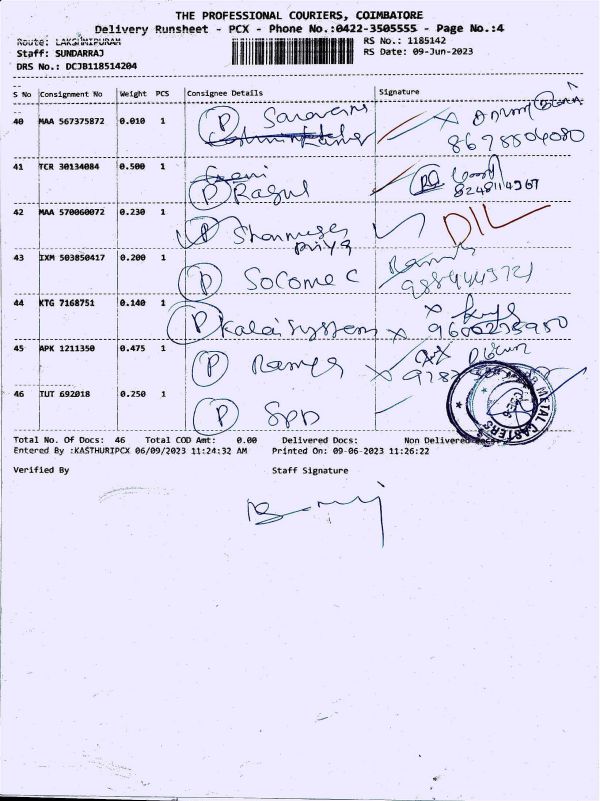 THE PROFESSIONAL COURIERS, COIMBATORE
Delivery Runsheet - PCX - Phone No.:0422-3505555 - Page No.:4
Route: LAKSHMIPURAM RS No.: 1185142
Staff: SUNDARRAJ RS Date: 09-Jun-2023
DRS No.: DCJB118514204
S No Consignment No Weight PCS Consignee Details Signature
40 MAA 567375872 0.010 1 P Saravana
8678804080
41 TCR 30134084 0.500 1 P Ragul
8248114967
42 MAA 570060072 0.230 1 P Shanmuga Priya DIL
43 IXM 503850417 0.200 1 P Socomec
9884443721
44 KTG 7168751 0.140 1 P Kalai Systems X
45 APK 1211350 0.475 1 P Ramya X
46 TUT 692018 0.250 1 P SPD
METAL CASTERS
Total No. Of Docs: 46 Total COD Amt: 0.00 Delivered Docs: Non Delivered Docs:
Entered By :KASTHURIPCX 06/09/2023 11:24:32 AM Printed On: 09-06-2023 11:26:22
Verified By Staff Signature